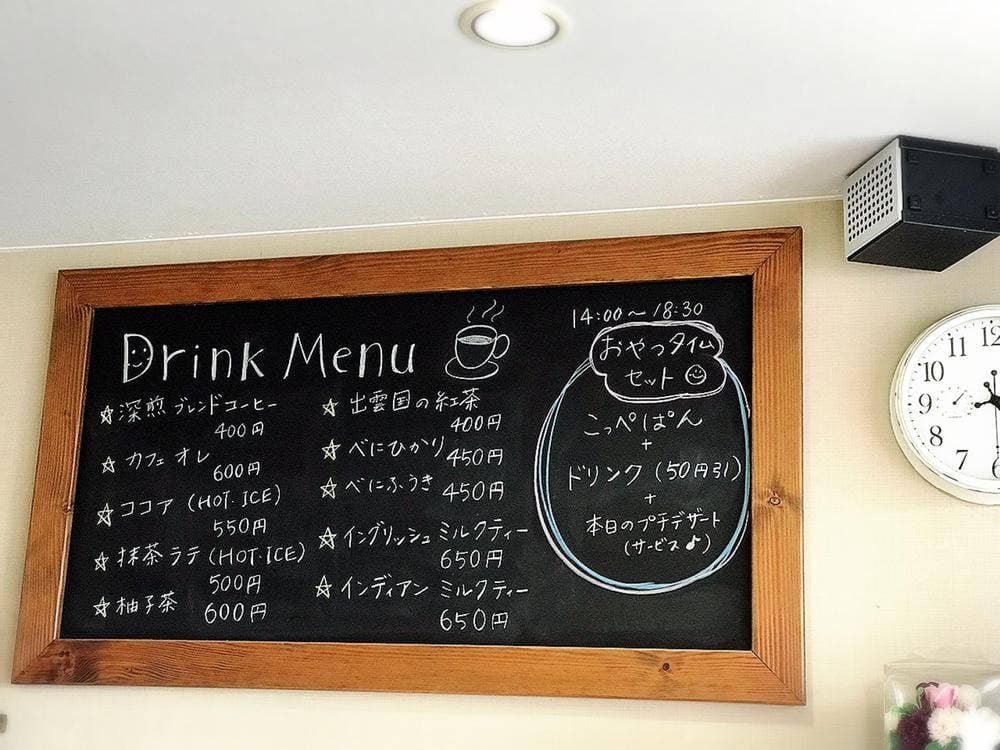 Drink Menu
☆深煎ブレンドコーヒー
400円
☆カフェオレ
600円
☆ココア (HOT・ICE)
550円
☆抹茶ラテ(HOT・ICE)
500円
☆柚子茶 600円
☆出雲国の紅茶
400円
☆べにひかり 450円
☆べにふうき 450円
☆イングリッシュミルクティー
650円
☆インディアンミルクティー
650円
14:00～18:30
おやつタイム
セット
こっぺぱん
+
ドリンク(50円引)
+
本日のプチデザート
(サービス♪)
10 11 12
9
8
7 6